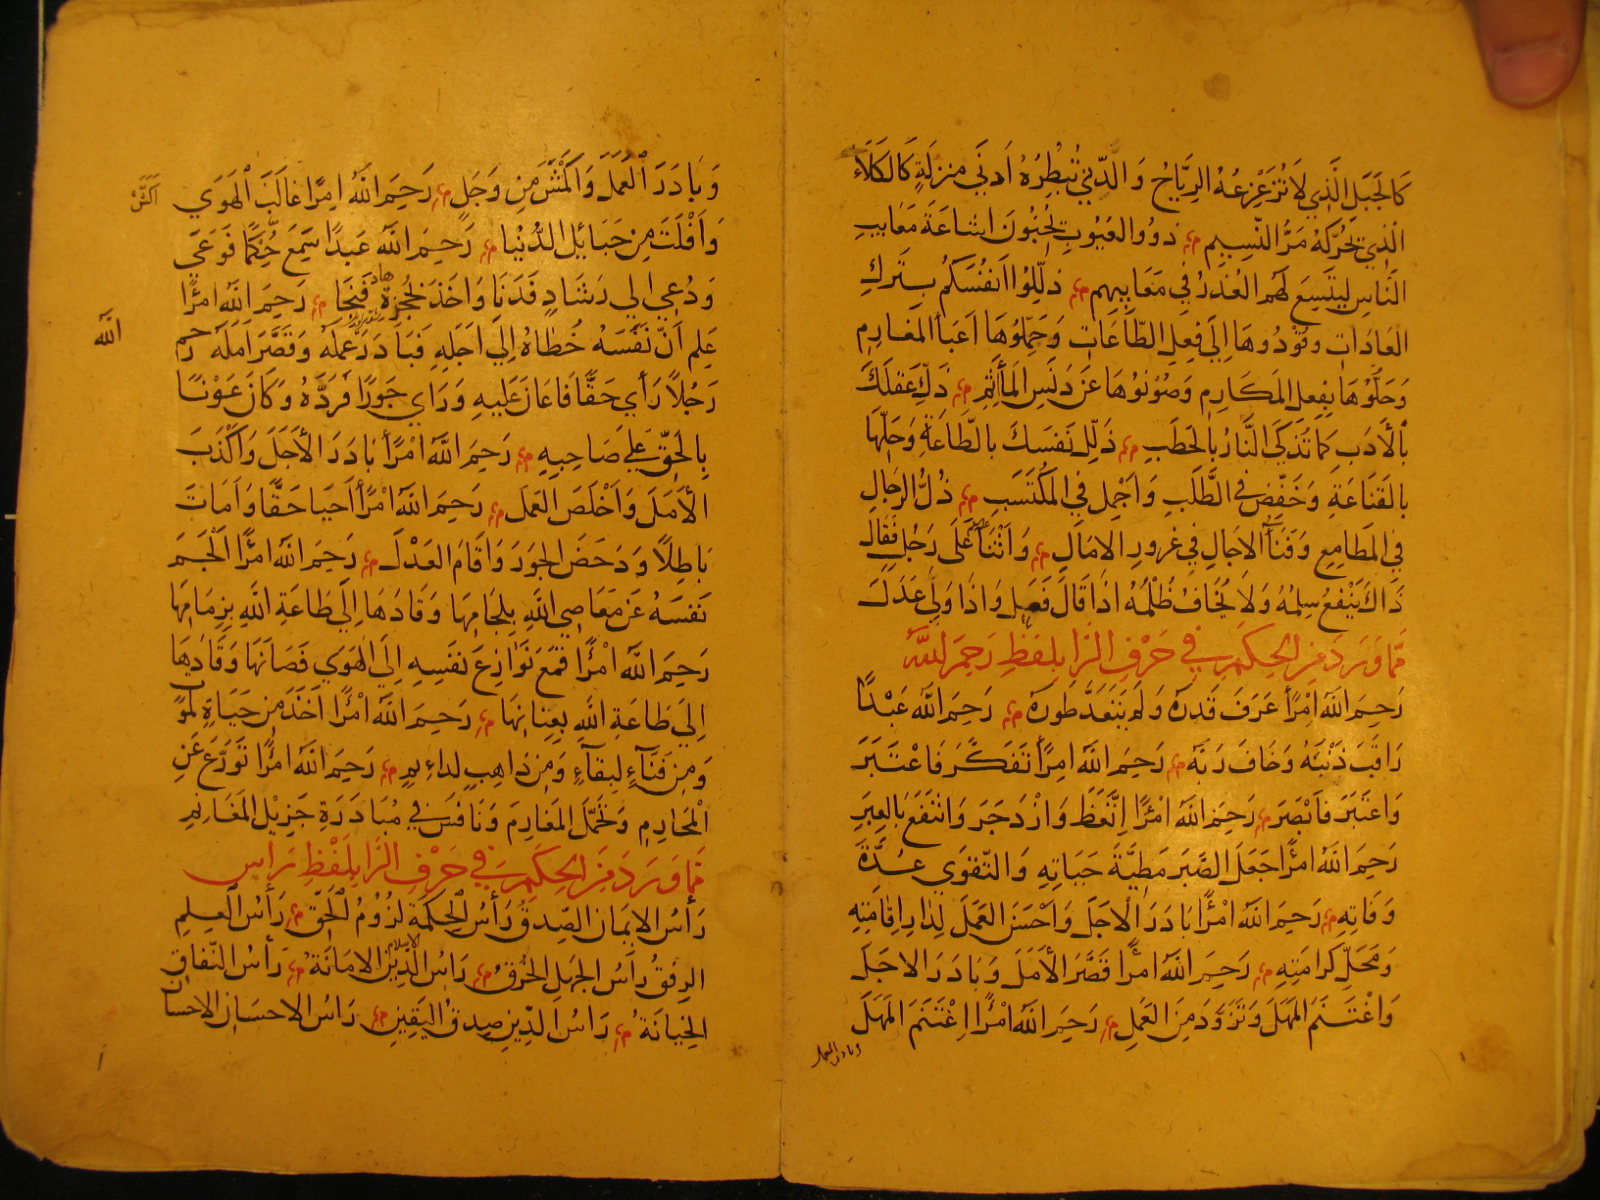 كَالجَبَلِ الَّذِي لَا تُزَعْزِعُهُ الرِيَاحُ وَالدَّنِيُّ تُبْطِرُهُ أَدنَي مَنزِلَةٍ كَالكَلَاءِ
الذِي يُحَرِّكُهُ مَرُّ النَّسِيمِ ذوُوا العُيُوبِ يُحِبُّونَ اِشَاعَةَ مَعَايِبِ
النَّاسِ لِيَتَّسِعَ لَهُم العُذرُ فِي مَعَايِبِهِم ذلِّلُوا اَنفُسَكُم بِتَركِ
العَادَاتِ وَقُوْدُوهَا اِلَي فِعلِ الطَّاعَاتِ وَحَمِّلُوْهَا اَعبَاءَ المَغَارِمِ
وَحَلُّوْهَا بِفِعلِ المَكَارِمِ وَصُوْنُوْهَا عَن دَنَسِ المَأثِمِ ذَكِّ عَقلَكَ
بِالأَدَبِ كَمَا تُذَكَّي النَّارُ بِالحَطَبِ ذَلِّل نَفسَكَ بِالطَّاعَةِ وَحَلِّهَا
بالقَنَاعَةِ وَخَفِّض فِي الطَّلَبِ وَاَجْمِل فِي المُكْتَسَبِ ذُلُّ الرِجَالِ
فِي المَطَامِعِ وَفَنَاءُ الاجَالِ فِي غُرورِ الامَالِ وَاَثْنَي عَلَى رَجُلٍ فَقَالَ
ذَاكَ يَنْفَعُ سِلمُهُ وَلَا يُخَافُ ظُلْمُهُ اذَا قَالَ فَعَلَ وَاذَا وَلِيَ عَدَلَ
مِمَّا وَرَدَ مِنَ الحِكَمِ فِي حَرْفِ الرَّا بِلَفظِ رَحِمَ اللهُ
رَحِمَ اللهُ امْرَأً عَرَفَ قَدْرَهُ وَلَم يَتَعَدَّ طَورَهُ رَحِمَ اللهُ عَبْدًا
رَاقَبَ ذَنْبَهُ وَخَافَ رَبَّهُ رَحِمَ اللهُ امرَأً تَفَكَّرَ فَاعْتَبَرَ
وَاعتَبَرَ فَاَبْصَرَ رَحِمَ اللهُ امْرًا اِتَّعَظَ وَازْدَجَرَ وَانْتَفَعَ بِالعِبَرِ
رَحِمَ اللهُ امرًا جَعَلَ الصَّبَرَ مَطِيَّةَ حَيَاتِهِ وَالتَّقوَي عُدَّةَ
وَفَاتِهِ رَحِمَ اللهُ امْرًأ بَادَرَ الاَجَلَ وَاَحْسَنَ العَمَلَ لِدَارِ اِقَامَتِهِ
وَمَحَلِّ كَرَامَتِهِ رَحِمَ اللهُ امرًأ قَصَّرَ الأَمَلَ وَبَادَرَ الاجَلَ
وَاغْتَنَمَ المَهَلَ وَتَزَوَّدَ مِنَ العَمَلِ رَحِمَ اللهُ امْرًأ اِغْتَنَمَ المَهَلَ
وبادر العمل
وَبَادَرَ العَمَلَ وَاَكْمَشَ مِن وَجَلٍ رَحِمَ اللهُ امِرًا غَالَبَ الهَوَي
وَاَفْلَتَ مِن حَبَائِلِ الدُّنيَا رَحِمَ اللهُ عَبدًا سَمِعَ حُكْمًا فَوَعَي
وَدُعِيَ اِلي رَشَادٍ فَدَنَا وَاَخَذَ بِحُجزَةِ هاد فَنَجَا رَحِمَ اللهُ امرًأ
عَلِمَ اَنَّ نَفَسَهُ خُطَاهُ اِلَي اَجَلِهِ فَبَادَرَ عَمَلَهُ وَقَصَّرَ اَمَلَهُ رَحِمَ
الله
رَجُلًا رَأَي حَقًّا فَاعَانَ عَلَيهِ وَرَاي جَورًا فَرَدَّهُ وَكَانَ عَوْنًا
بِالحَقِّ عَلَي صَاحِبِهِ رَحِمَ اللهُ امْرَأً بَادَرَ الأَجَلَ وَاَكْذَبَ
الأَمَلَ وَاَخْلَصَ العَمَلَ رَحِمَ اللهُ امْرًأ اَحيَا حَقًّا وَاَمَاتَ
بَاطِلًا وَدَحَضَ الجَورَ وَاَقَامَ العَدْلَ رَحِمَ اللهُ امرًأ اَلْجَمَ
نَفسَهُ عَن مَعَاصِي اللهِ بِلِجَامِهَا وَقَادَهَا اِلَي طَاعَةِ اللهِ بِزِمَامِهَا
رَحِمَ اللهُ امْرًأ قَمَعَ نَوَازِعَ نَفسِهِ اِلَي الهَوَي فَصَانَهَا وَقَادَهَا
اِلَي طَاعَةِ اللهِ بِعِنَانِهَا رَحِمَ اللهُ امْرًأ اَخَذَ مِن حَيَاةٍ لِمَوتٍ
وَمِن فَنَآءٍ لِبَقَآءٍ وَمِن ذَاهِبٍ لِدَاءِيمٍ رَحِمَ اللهُ امرًأ تَوَرَّعَ عَنِ
المَحَارِمِ وَتَحَمَّلَ المَغَارِمَ وَنَافَسَ فِي مُبَادَرَةِ جَزِيلِ المَغَانِمِ
مِمَّا وَرَدَ مِنَ الحِكَمِ فِي حَرْفِ الرَّا بِلَفْظِ رَأس
رَأسُ الاِيمَانِ الصِّدقُ رَأسُ الحِكمَةِ لزُوْمُ الحَقِّ رَأسُ العِلمِ
الرِفقُ رَأسُ الجَهلِ الخُرْقُ رَاسُ الاسلام الامَانَةُ رَأسُ النِّفَاقِ
الخِيَانَةُ رَاسُ الدِّينِ صِدقُ اليَقِينِ رَاسُ الاحسَانِ الاحسَان